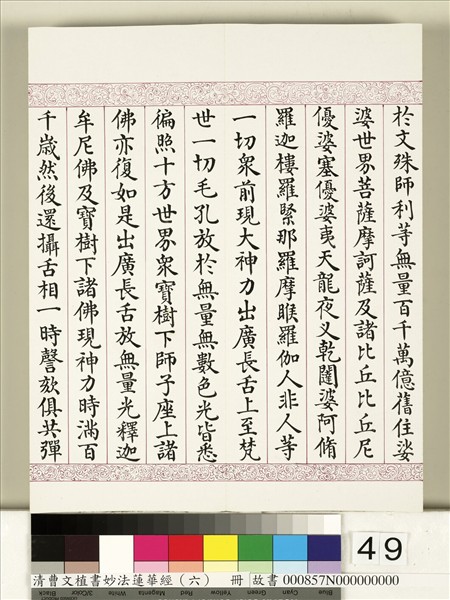 於文殊師利等無量百千萬億舊住娑
婆世界菩薩摩訶薩及諸比丘比丘尼
優婆塞優婆夷天龍夜叉乾闥婆阿脩
羅迦樓羅緊那羅摩睺羅伽人非人等
一切衆前現大神力出廣長舌上至梵
世一切毛孔放於無量無數色光皆悉
徧照十方世界衆寶樹下師子座上諸
佛亦復如是出廣長舌放無量光釋迦
牟尼佛及寶樹下諸佛現神力時滿百
千歲然後還攝舌相一時謦欬俱共彈
49
Black
3/Color
White
Magenta
Red
Yellow
Green
Cyan
Blue
清曹文植書妙法蓮華經（六） 冊 故書 000857N000000000